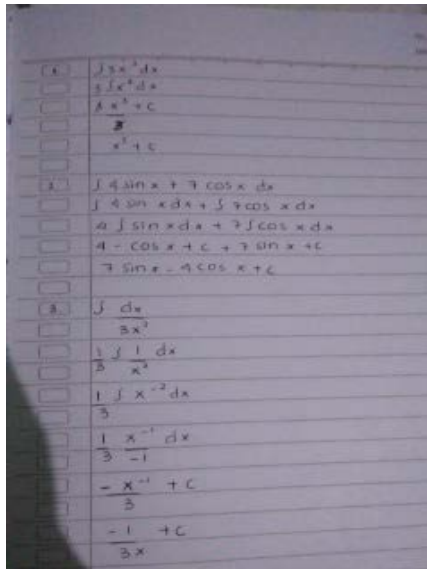 1. ∫ 3x² dx
3 ∫ x² dx
3 x³/3 + C
x³ + C
2. ∫ 4 sin x + 7 cos x dx
∫ 4 sin x dx + ∫ 7 cos x dx
4 ∫ sin x dx + 7 ∫ cos x dx
4 - cos x + C + 7 sin x + C
7 sin x - 4 cos x + C
3. ∫ dx/3x²
1/3 ∫ 1/x² dx
1/3 ∫ x⁻² dx
1/3 x⁻¹/-1 dx
- x⁻¹/3 + C
-1/3x + C